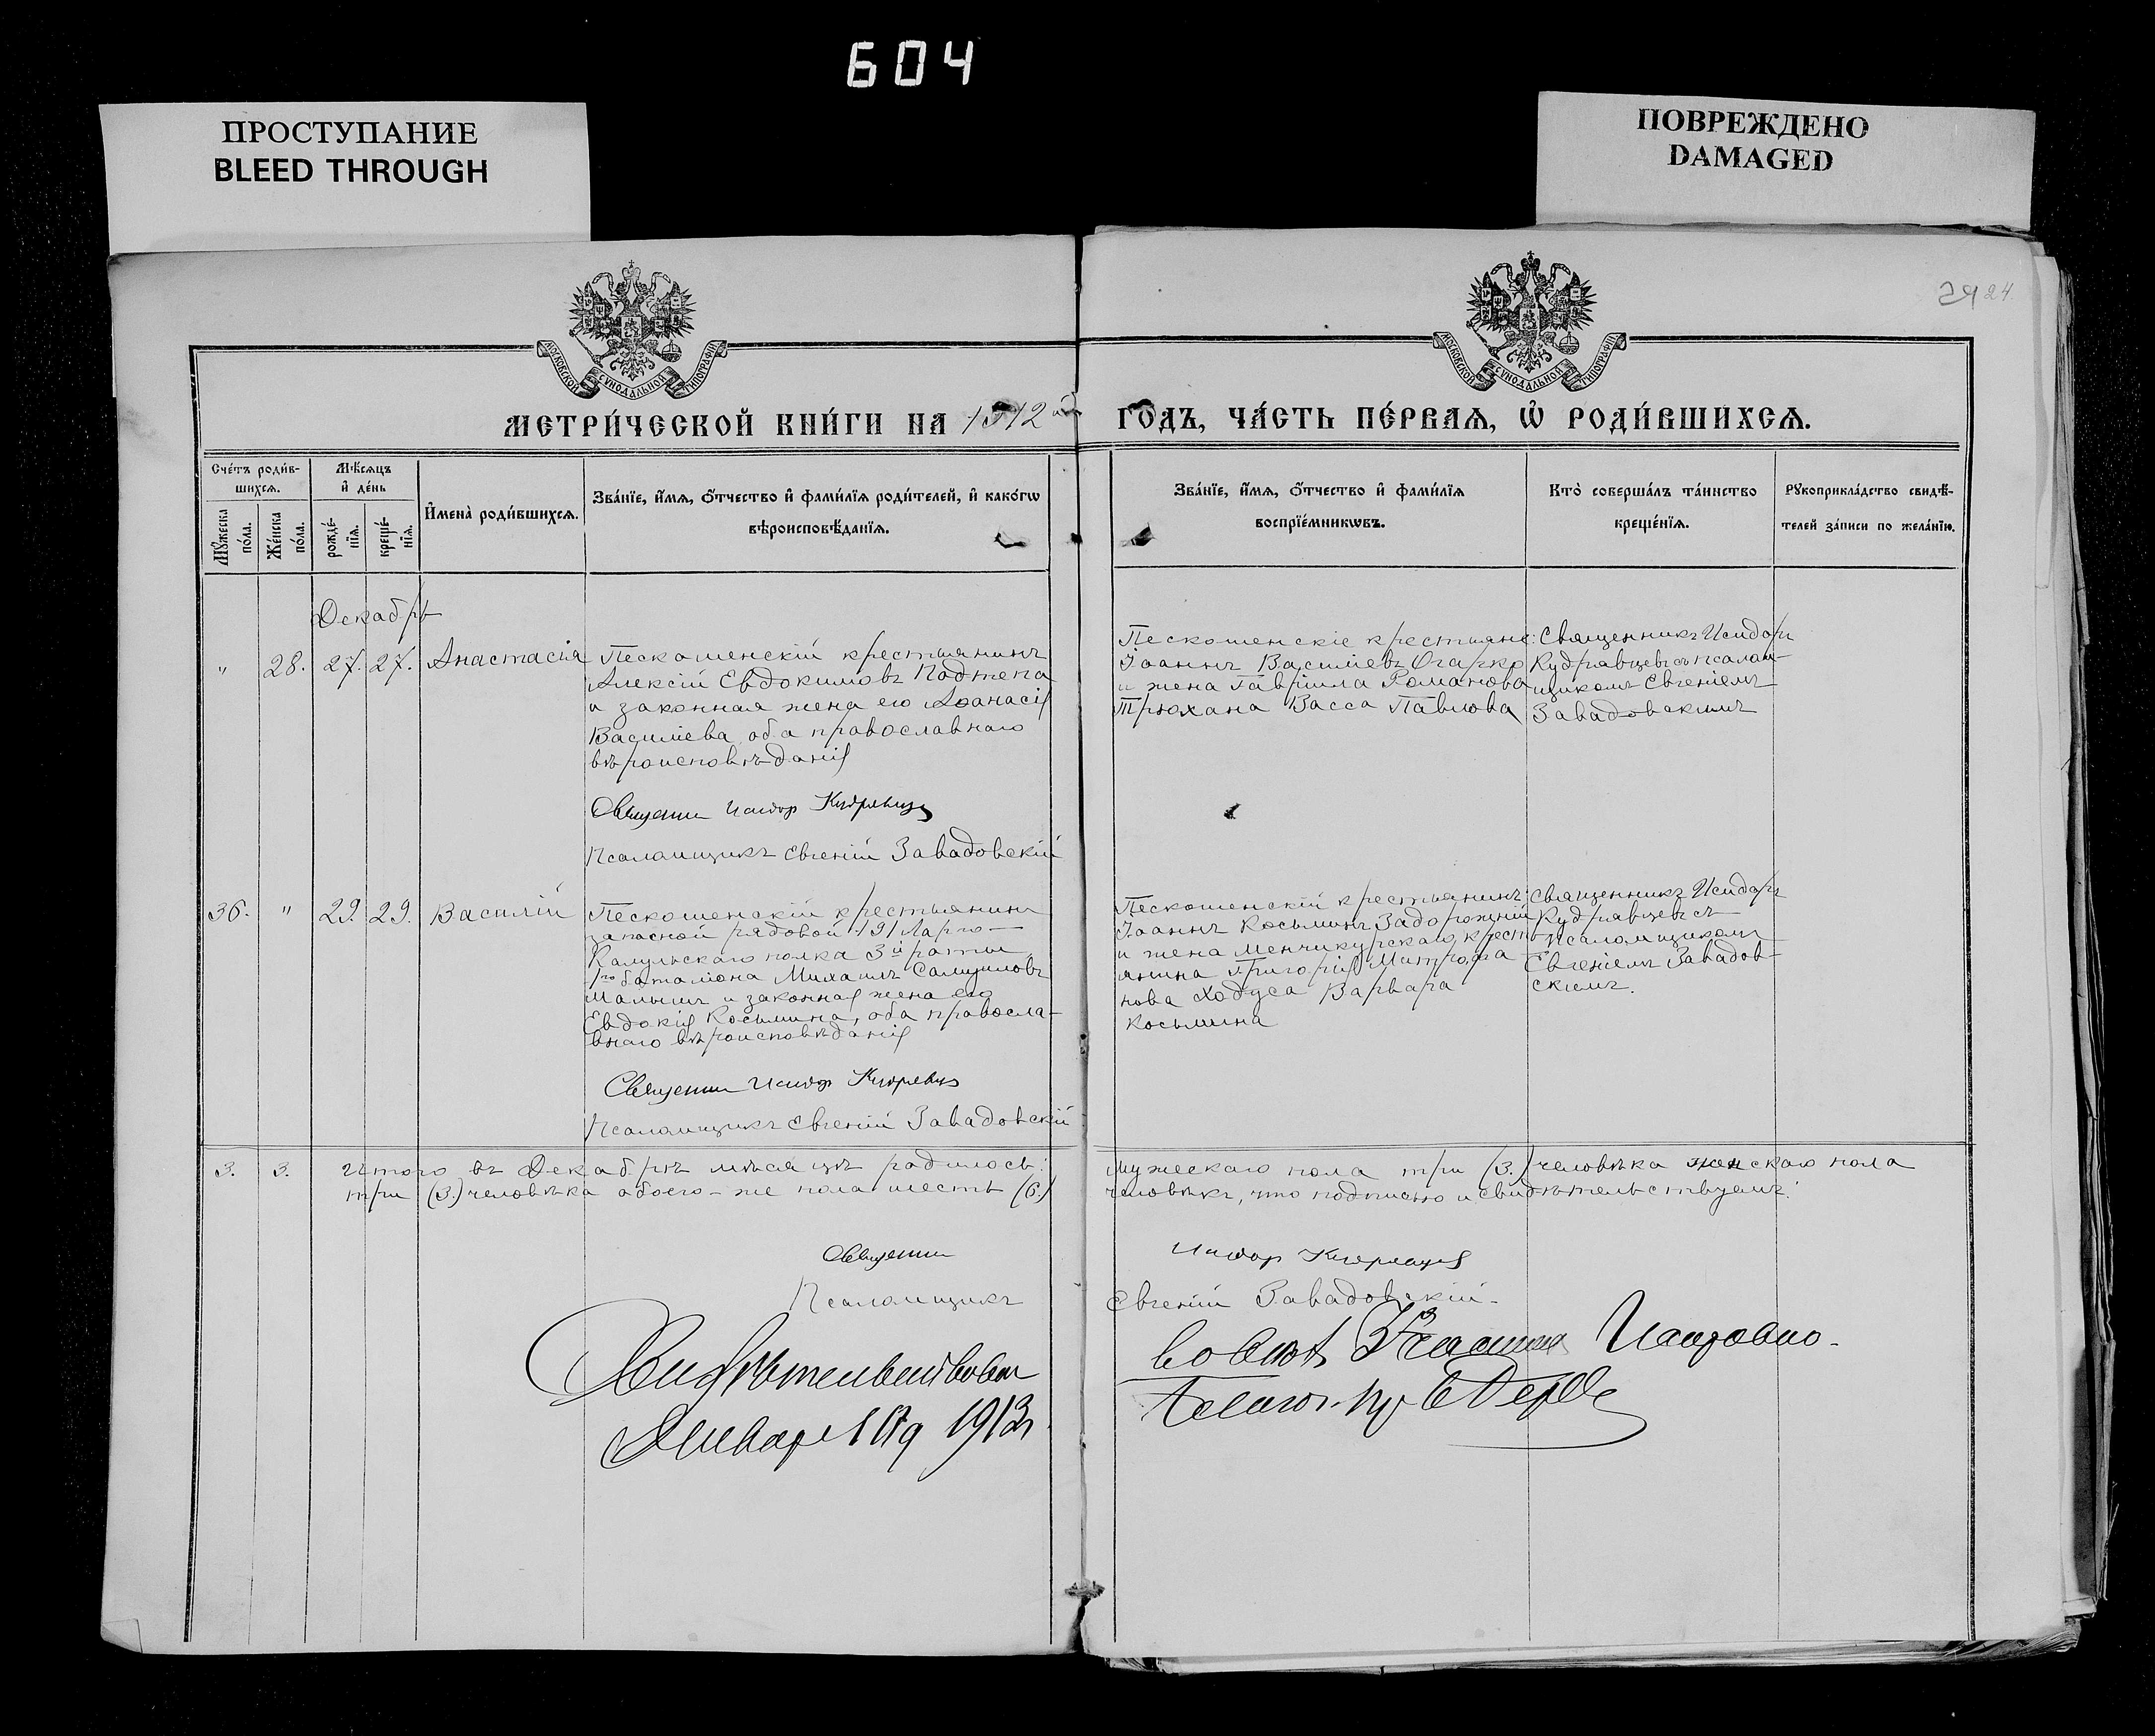 604
ПРОСТУПАНИЕ
BLEED THROUGH
ПОВРЕЖДЕНО
DAMAGED
24 24.
МОСКОВСКОЙ СѴНОДАЛЬНОЙ ТИПОГРАФІИ
МОСКОВСКОЙ СѴНОДАЛЬНОЙ ТИПОГРАФІИ
МЕТРИ́ЧЕСКОЙ КНИ́ГИ НА 1912 й ГОДЪ, ЧА́СТЬ ПЕ́РВАѦ, Ѡ҆ РОДИ́ВШИХСѦ.
Сче́тъ роди́в-
шихсѧ.
Мѣ́сѧцъ
и҆ де́нь
Мꙋ́жеска
по́ла.
Же́нска
по́ла.
рожде́-
нїѧ.
креще́-
нїѧ.
И҆мена̀ роди́вшихсѧ.
Зва́нїе, и҆́мѧ, ѻ҆́тчество и҆ фами́лїѧ роди́телей, и҆ како́гѡ
вѣроисповѣ́данїѧ.
Зва́нїе, и҆́мѧ, ѻ҆́тчество и҆ фами́лїѧ
воспрїе́мникѡвъ.
Кто̀ соверша́лъ та́инство
креще́нїѧ.
Рꙋкоприкла́дство свидѣ́-
телей за́писи по жела́нїю.
Декабрь
" 28. 27. 27. Анастасія
Пескошенскій крестьянинъ
Алексій Евдокимовъ Подтепа
и законная жена его Аѳанасія
Василіева, оба православнаго
вѣроисповѣданія
Священник Исидор Кудрявцев
Псаломщикъ Евгеній Завадовскій
Пескошенскіе крестьяне:
Іоаннъ Василіевъ Огарко
и жена Гавріила Романова
Трюхана Васса Павлова
Священникъ Исидоръ
Кудрявцевъ съ псалом-
щикомъ Евгеніемъ
Завадовскимъ
36. " 29. 29. Василій
Пескошенскій крестьянинъ
запасной рядовой 191 Ларго-
Кагульскаго полка 3й роты
1го баталіона Михаилъ Самуиловъ
Малышъ и законная жена его
Евдокія Косьмина, оба правосла-
внаго вѣроисповѣданія
Священник Исидор Кудрявцев
Псаломщикъ Евгеній Завадовскій
Пескошенскій крестьянинъ:
Іоаннъ Косьминъ Задорожній
и жена Менчикурскаго кресть-
янина Григорія Митрофа-
нова Ходуса Варвара
Косьмина
Священникъ Исидоръ
Кудрявцевъ съ
псаломщикомъ
Евгеніемъ Завадов-
скимъ.
3. 3. Итого въ Декабрѣ мѣсяцѣ родилось: мужескаго пола три (3.) человѣка женскаго пола
три (3.) человѣка обоего-же пола шесть (6.) человѣкъ, что подписью и свидѣтельствуемъ:
Священник Исидор Кудрявцев
Псаломщикъ Евгеній Завадовскій.
Свидѣтельствовал
Января 1913